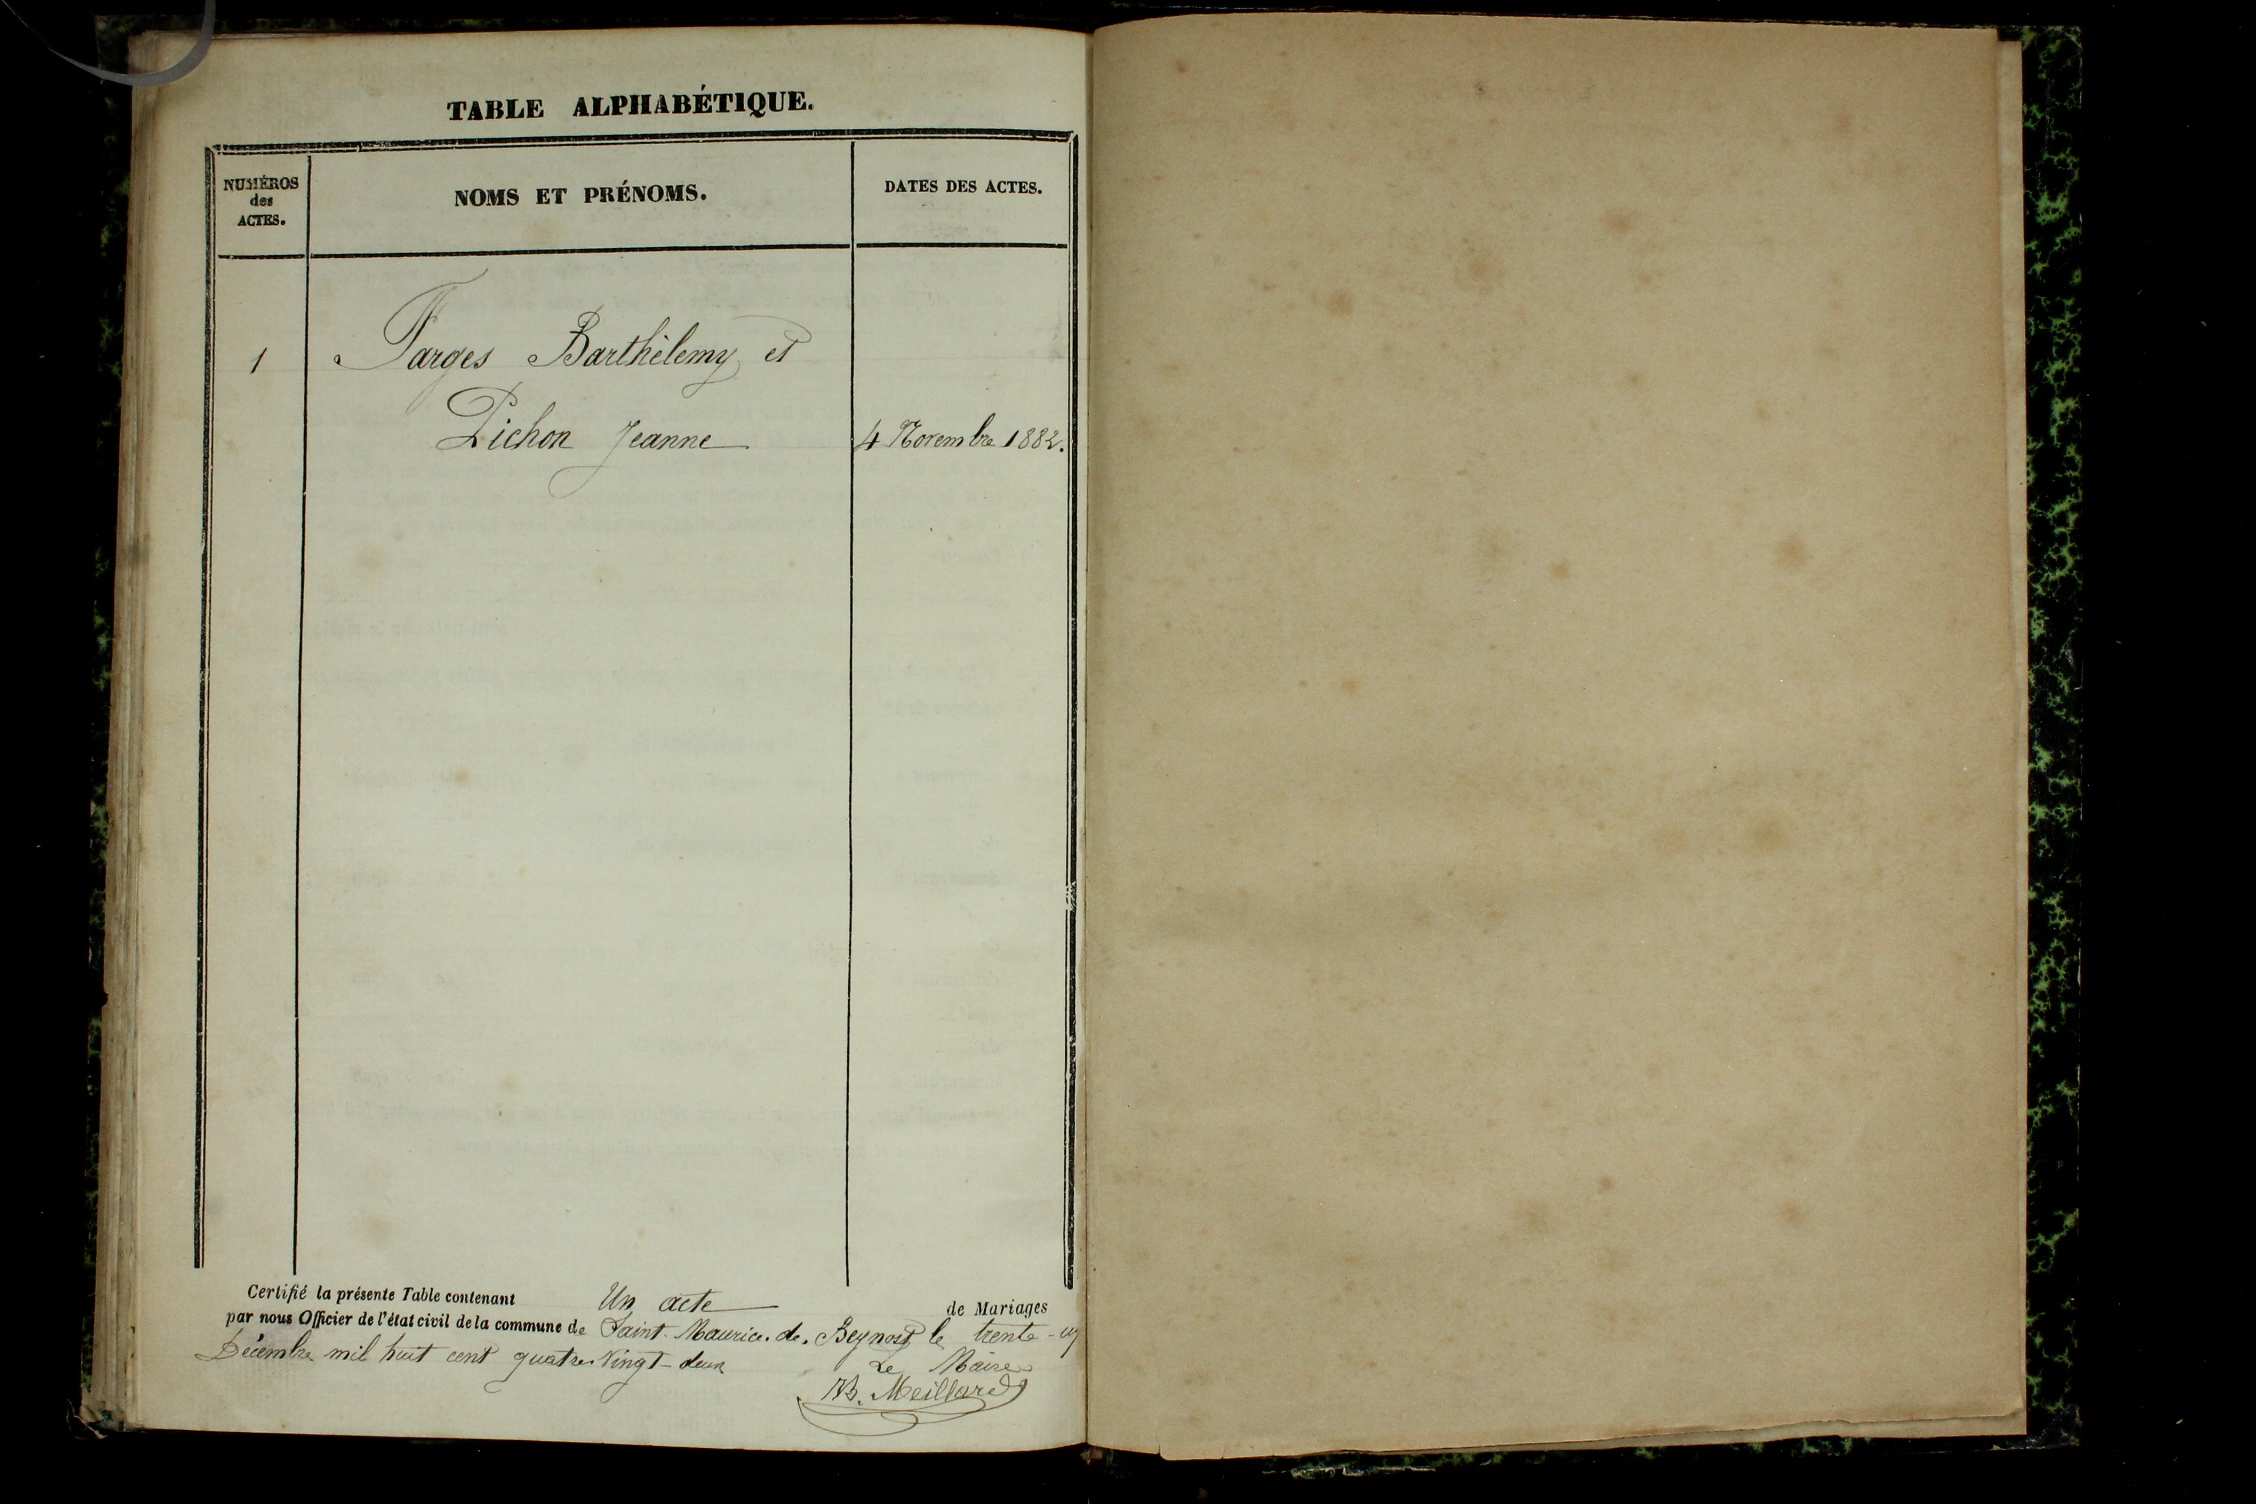 TABLE ALPHABÉTIQUE.
NUMÉROS
des
ACTES.
NOMS ET PRÉNOMS.
DATES DES ACTES.
1 Farges Barthèlemy et
Pichon Jeanne 4 Novembre 1882.
Certifié la présente Table contenant Un acte de Mariages
par nous Officier de l'état civil de la commune de Saint-Maurice-de-Beynost le trente-un
Décembre mil huit cent quatre Vingt-deux
Le Maire
B. Meillard